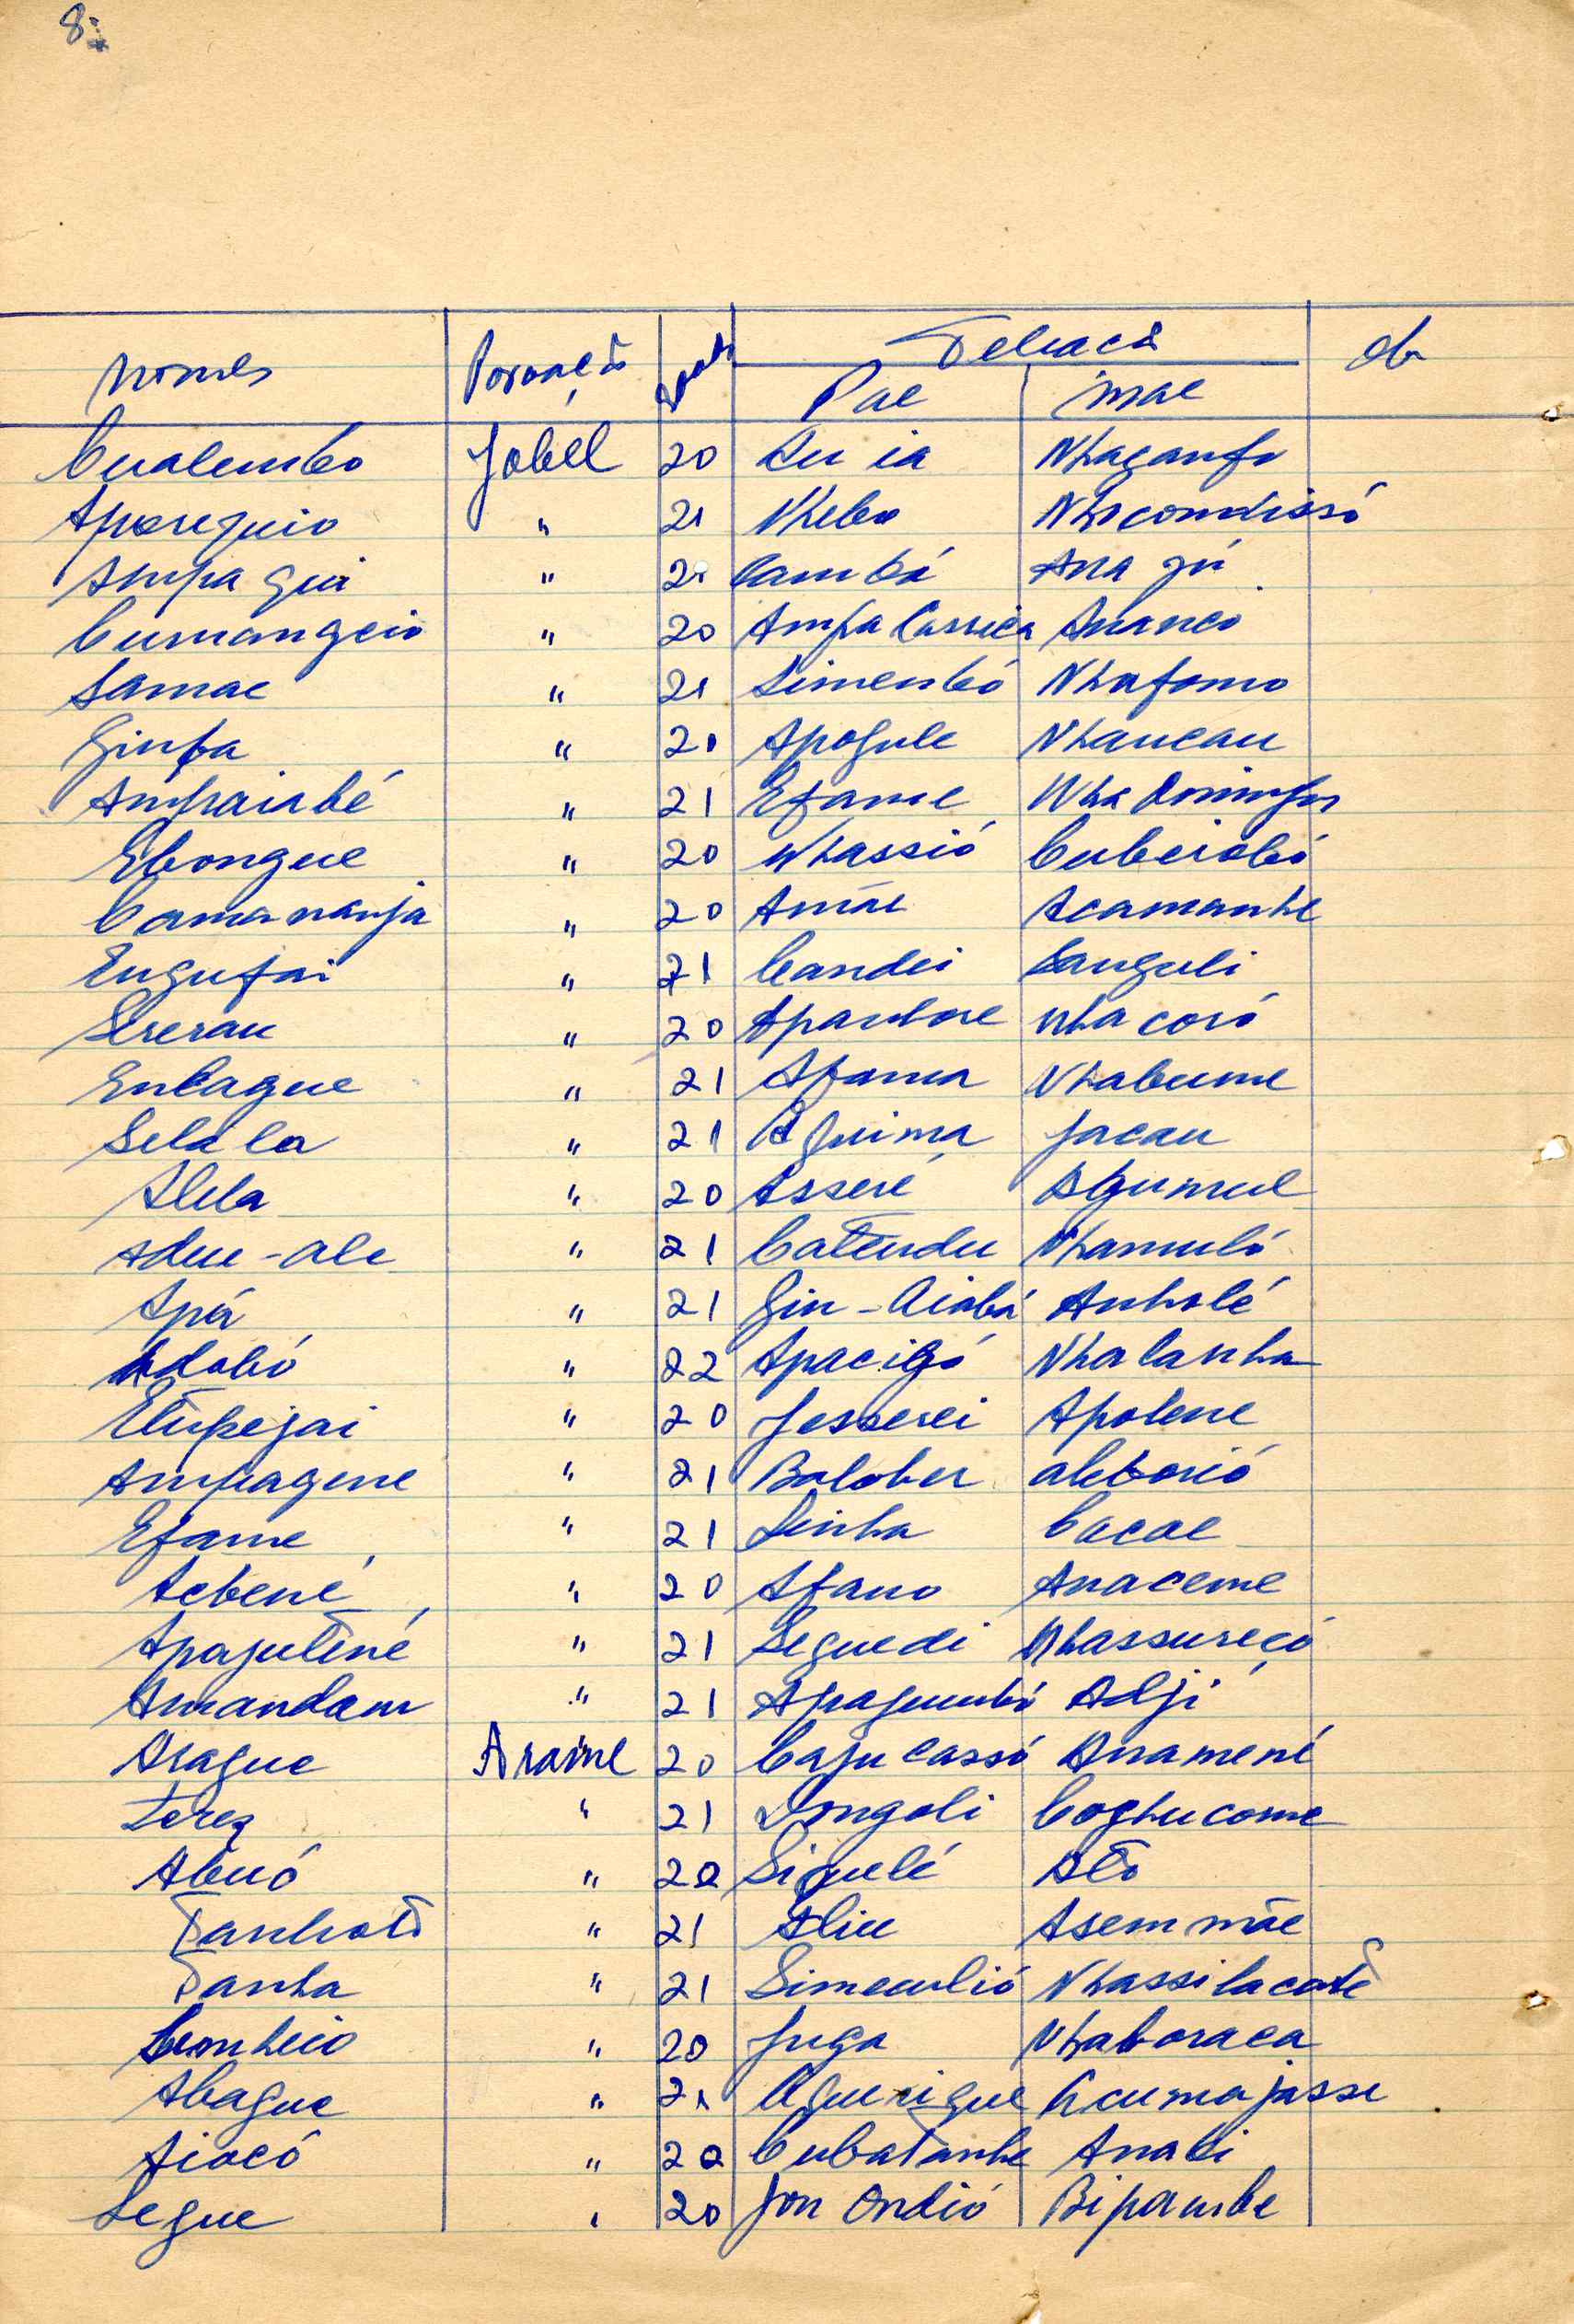 8
Nomes Povoação Idade Feliacã Ob
Pae Mae
Cualembo Jobel 20 Su ia Nhaganfo
Aparequio " 21 Nhebo Nhacondissó
Ampa Qui " 21 Cambá Ana Jú
Cumangeio " 20 Ampa Cassica Ananco
Samae " 21 Simenbó Nhafomo
Ginpa " 20 Apogule Nhancau
Ampaiabé " 21 Efame Nha Domingos
Ebongue " 20 Nhassió Cubeiabó
Camananja " 20 Amãe Acamanhe
Engufai " 21 Candei Sanguli
Sererau " 20 Apambore Nha coró
Enbague " 21 Afama Nhabume
Selala " 21 Aguima Jacau
Alela " 20 Asseré Agumul
Adue-ale " 21 Catendu Nhamuló
Apá " 21 Gin-Aiabá Anholé
Adobó " 22 Apacigó Nhalanha
Etupejai " 20 Jesserei Apolene
Ampagene " 21 Balober aleborió
Efame " 21 Sinha Cacoe
Aebené " 20 Afano Anaceme
Apajutené " 21 Seguedi Nhassureçó
Amandam " 21 Apagumbó Adji
Arague Arame 20 Caju cassó Anamené
Terez " 21 Dongoli Coghucome
Abuó " 20 Siquelé Ato
Tanhoto " 21 Aliu Asem mãe
Tanha " 21 Simeculió Nhassilacote
Comheio " 20 Juga Nhaboraca
Abague " 21 Aguerigue Acumajasse
Aiocó " 20 Cubatanhe Anabi
Segue " 20 Jon Ondió Bipambe